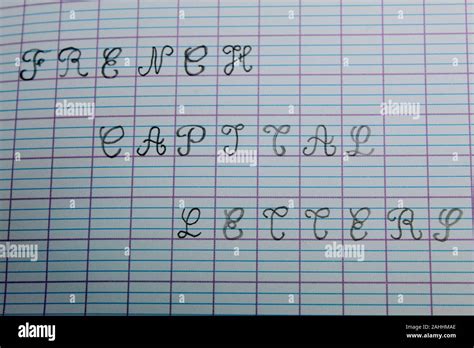 FRENCH
CAPITAL
LETTERS
alamy
Image ID: 2AHHMAE
www.alamy.com